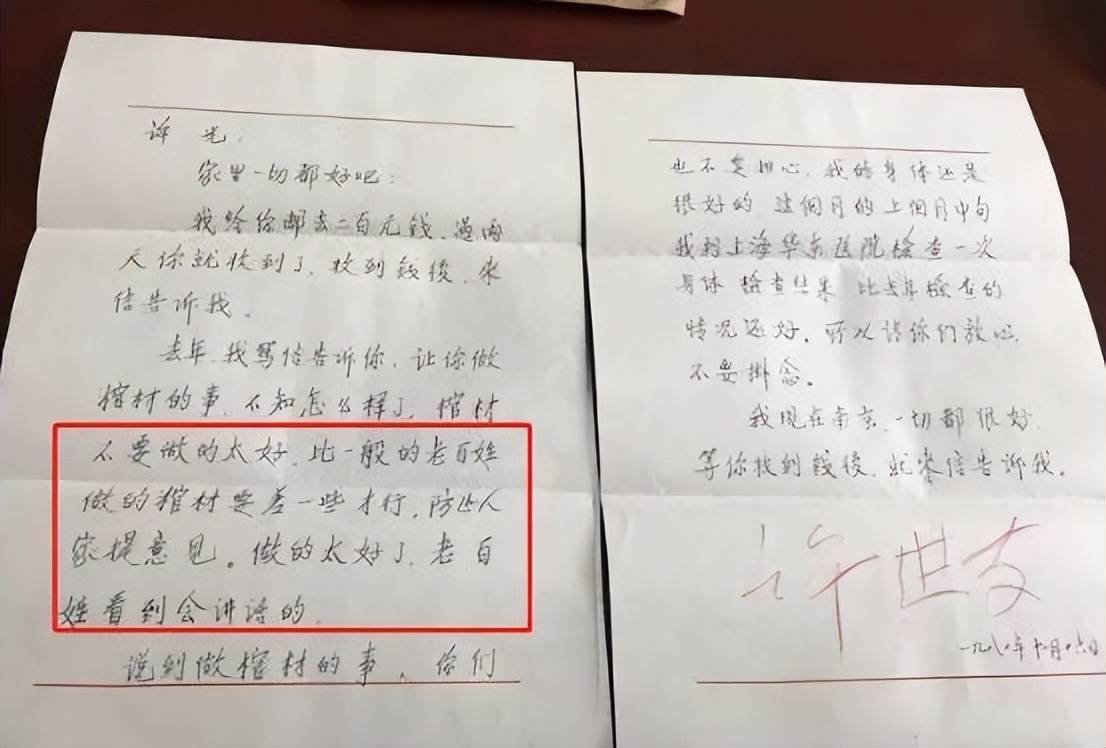 许光,
家里一切都好吧:
我给你邮去二百元钱、过两
天你就收到了、收到钱後、来
信告诉我、
去年、我写信告诉你、让你做
棺材的事、不知怎么样了、棺材
不要做的太好、比一般的老百姓
做的棺材要差一些才行、防止人
家提意见。做的太好了、老百
姓看到会讲话的、
说到做棺材的事、你们
也不要担心、我的身体还是
很好的 这个月的上个月中旬
我到上海华东医院检查一次
身体 检查结果 比去年检查的
情况还好、所以请你们放心、
不要掛念。
我现在南京、一切都很好、
等你收到钱後、来信告诉我。
许世友
一九八〇年十月